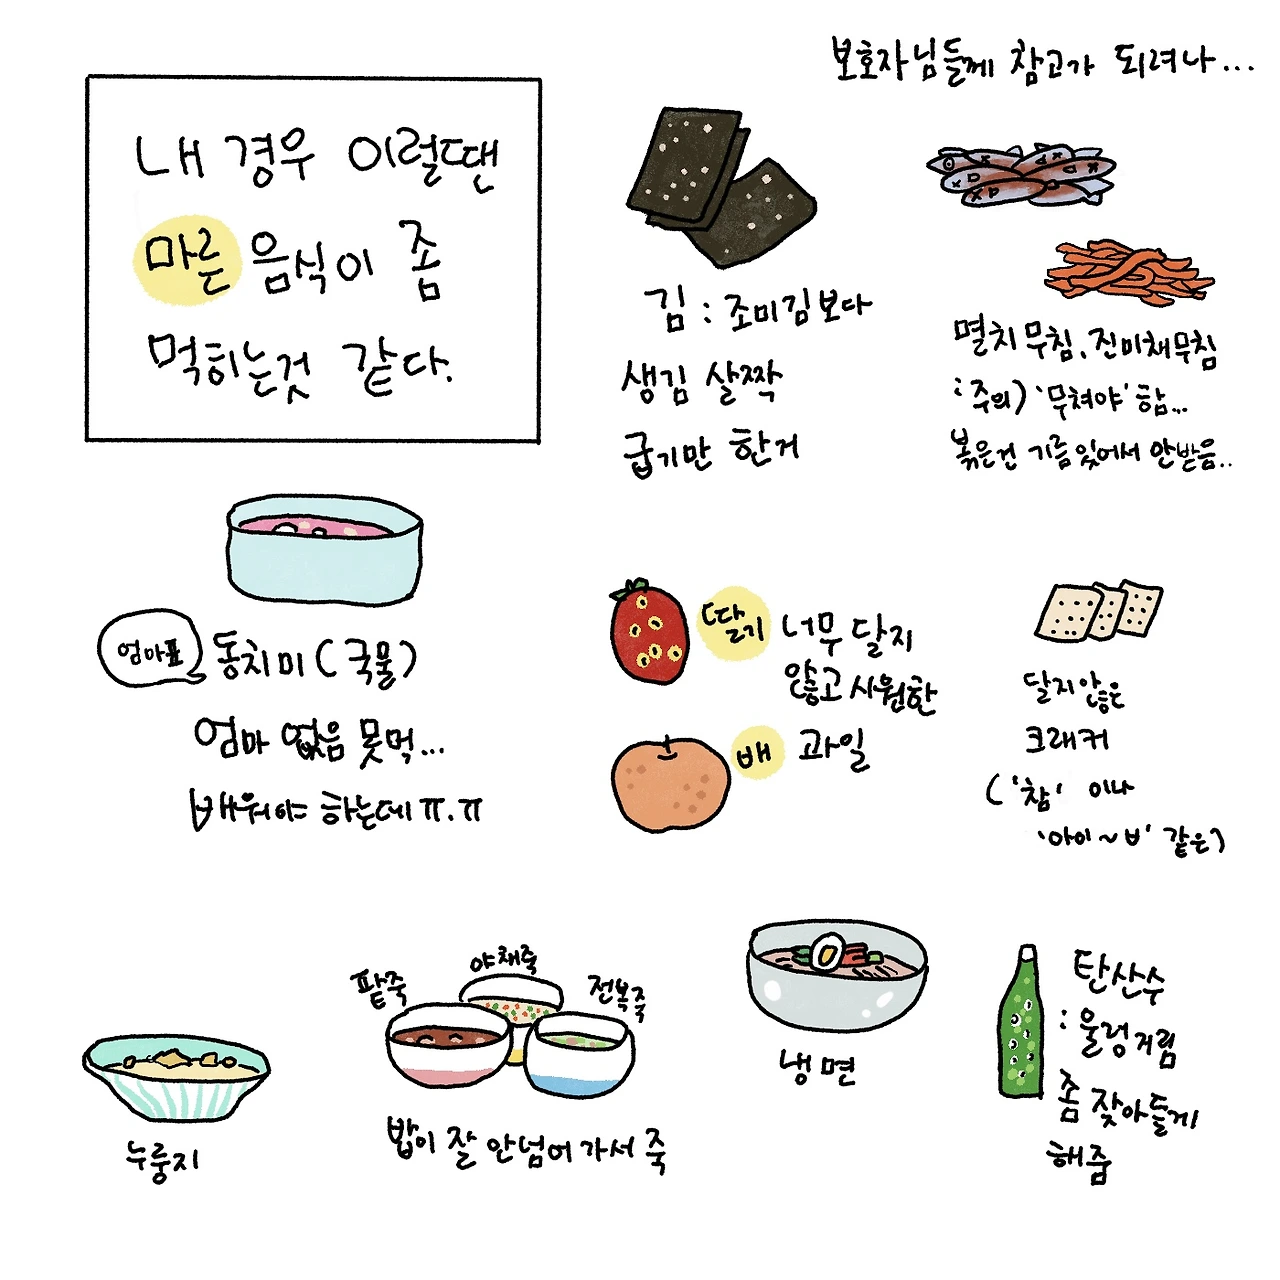 보호자님들께 참고가 되려나...
내 경우 이럴땐
마른 음식이 좀
먹히는것 같다.
김 : 조미김보다
생김 살짝
굽기만 한거
멸치무침, 진미채무침
: 주의) '무쳐야' 함...
볶은건 기름있어서 안받음..
엄마표
동치미 (국물)
엄마 없음 못먹...
배워야 하는데 ㅠ.ㅠ
딸기
너무 달지
않고 시원한
배
과일
달지않은
크래커
('참' 이나
'아이~비' 같은)
누룽지
팥죽
야채죽
전복죽
밥이 잘 안넘어가서 죽
냉면
탄산수
: 울렁거림
좀 잦아들게
해줌